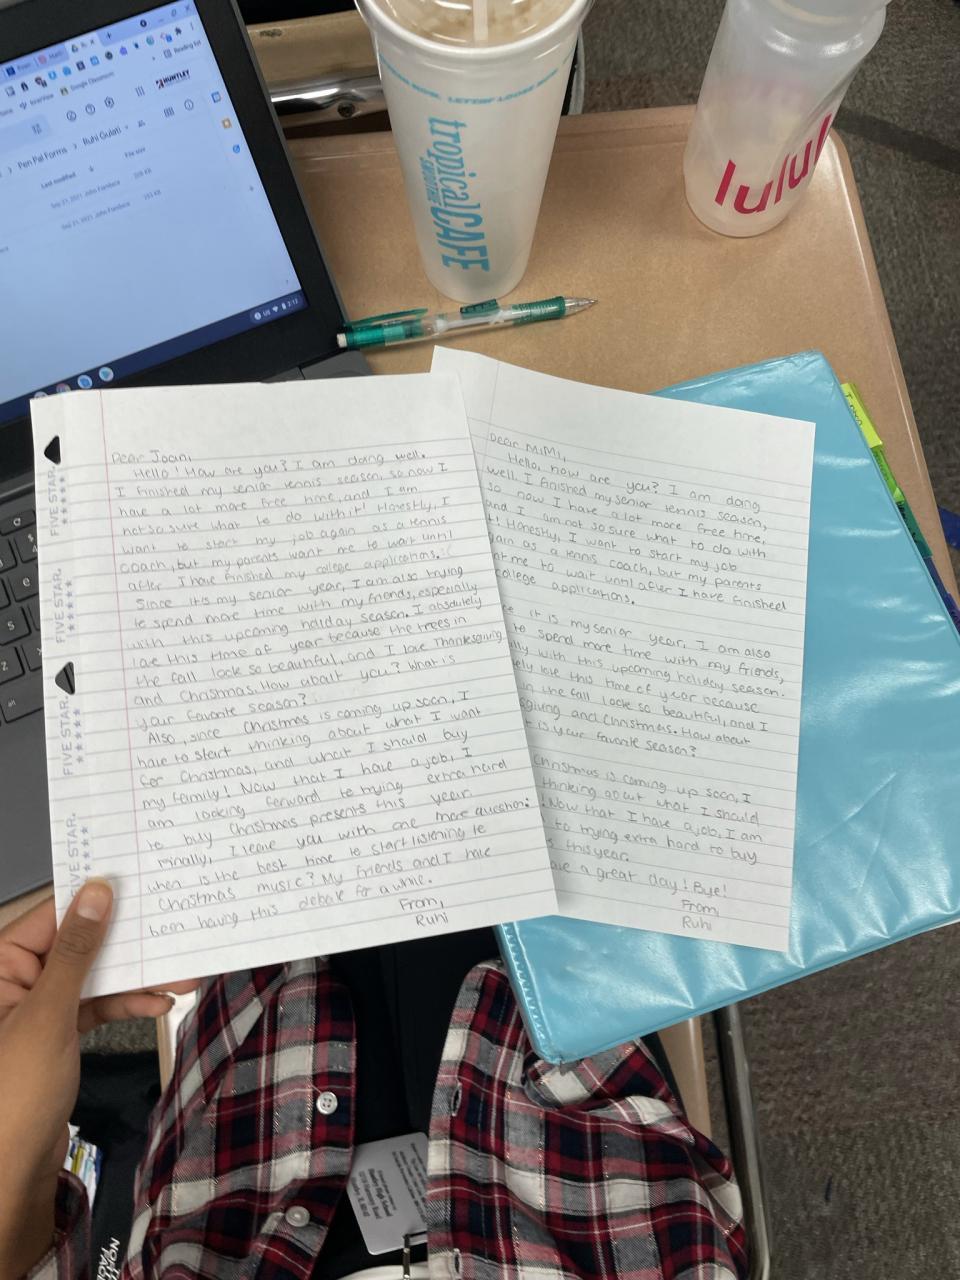 Reading list
Google Classroom
HUNTLEY
Pen Pal Forms > Ruhi Gulati
Last modified
File size
Sep 21, 2021 John Fandace
Sep 21, 2021 John Fandace
US 2:12
tropical
SMOOTHIE
CAFE
lulul
FIVE STAR.
FIVE STAR.
FIVE STAR.
FIVE STAR.
Dear Joan,
Hello! How are you? I am doing well.
I finished my senior tennis season, so now I
have a lot more free time, and I am
not so sure what to do with it! Honestly, I
want to start my job again as a tennis
coach, but my parents want me to wait until
after I have finished my college applications. :(
Since it is my senior year, I am also trying
to spend more time with my friends, especially
with this upcoming holiday season. I absolutely
love this time of year because the trees in
the fall look so beautiful, and I love Thanksgiving
and Christmas. How about you? What is
your favorite season?
Also, since Christmas is coming up soon, I
have to start thinking about what I want
for Christmas, and what I should buy
my family! Now that I have a job, I
am looking forward to trying extra hard
to buy Christmas presents this year.
Finally, I leave you with one more question:
when is the best time to start listening to
Christmas music? My friends and I have
been having this debate for a while.
From,
Ruhi
Dear MiMi,
Hello, how are you? I am doing
well. I finished my senior tennis season,
so now I have a lot more free time,
and I am not so sure what to do with
it! Honestly, I want to start my job
again as a tennis coach, but my parents
me to wait until after I have finished
college applications.
it is my senior year, I am also
to spend more time with my friends,
with this upcoming holiday season.
love this time of year because
in the fall look so beautiful, and I
and Christmas. How about
is your favorite season?
Christmas is coming up soon, I
thinking about what I should
! Now that I have a job, I am
to trying extra hard to buy
this year.
have a great day! Bye!
From,
Ruhi
Huntley High School